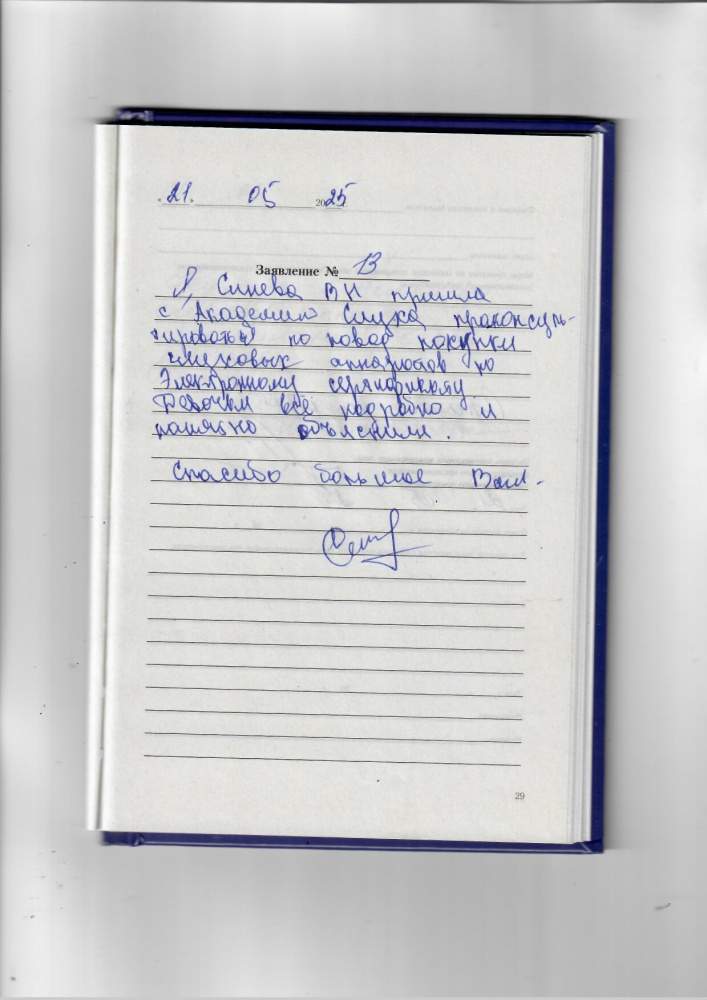 21. 05 2025
Заявление № 13
Я, Синева ВН пришла
с Академию Слуха проконсуль-
тироваться по повод покупки
слуховых аппаратов по
Электронному сертификату
Девочки все подробно и
понятно объяснили.
Спасибо большое Вам.
29